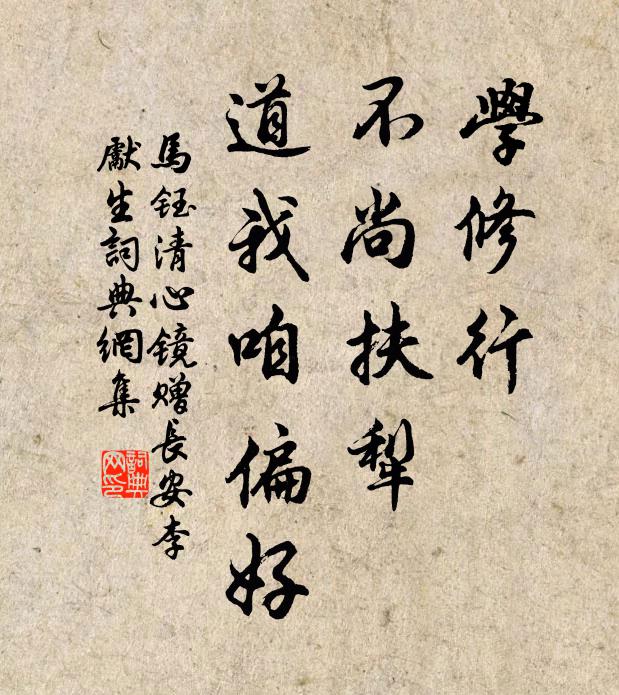 學修行
不尚扶犁
道我咱偏好
馬鈺清心镜赠長安李
獻生詞典網集
詞典
网印